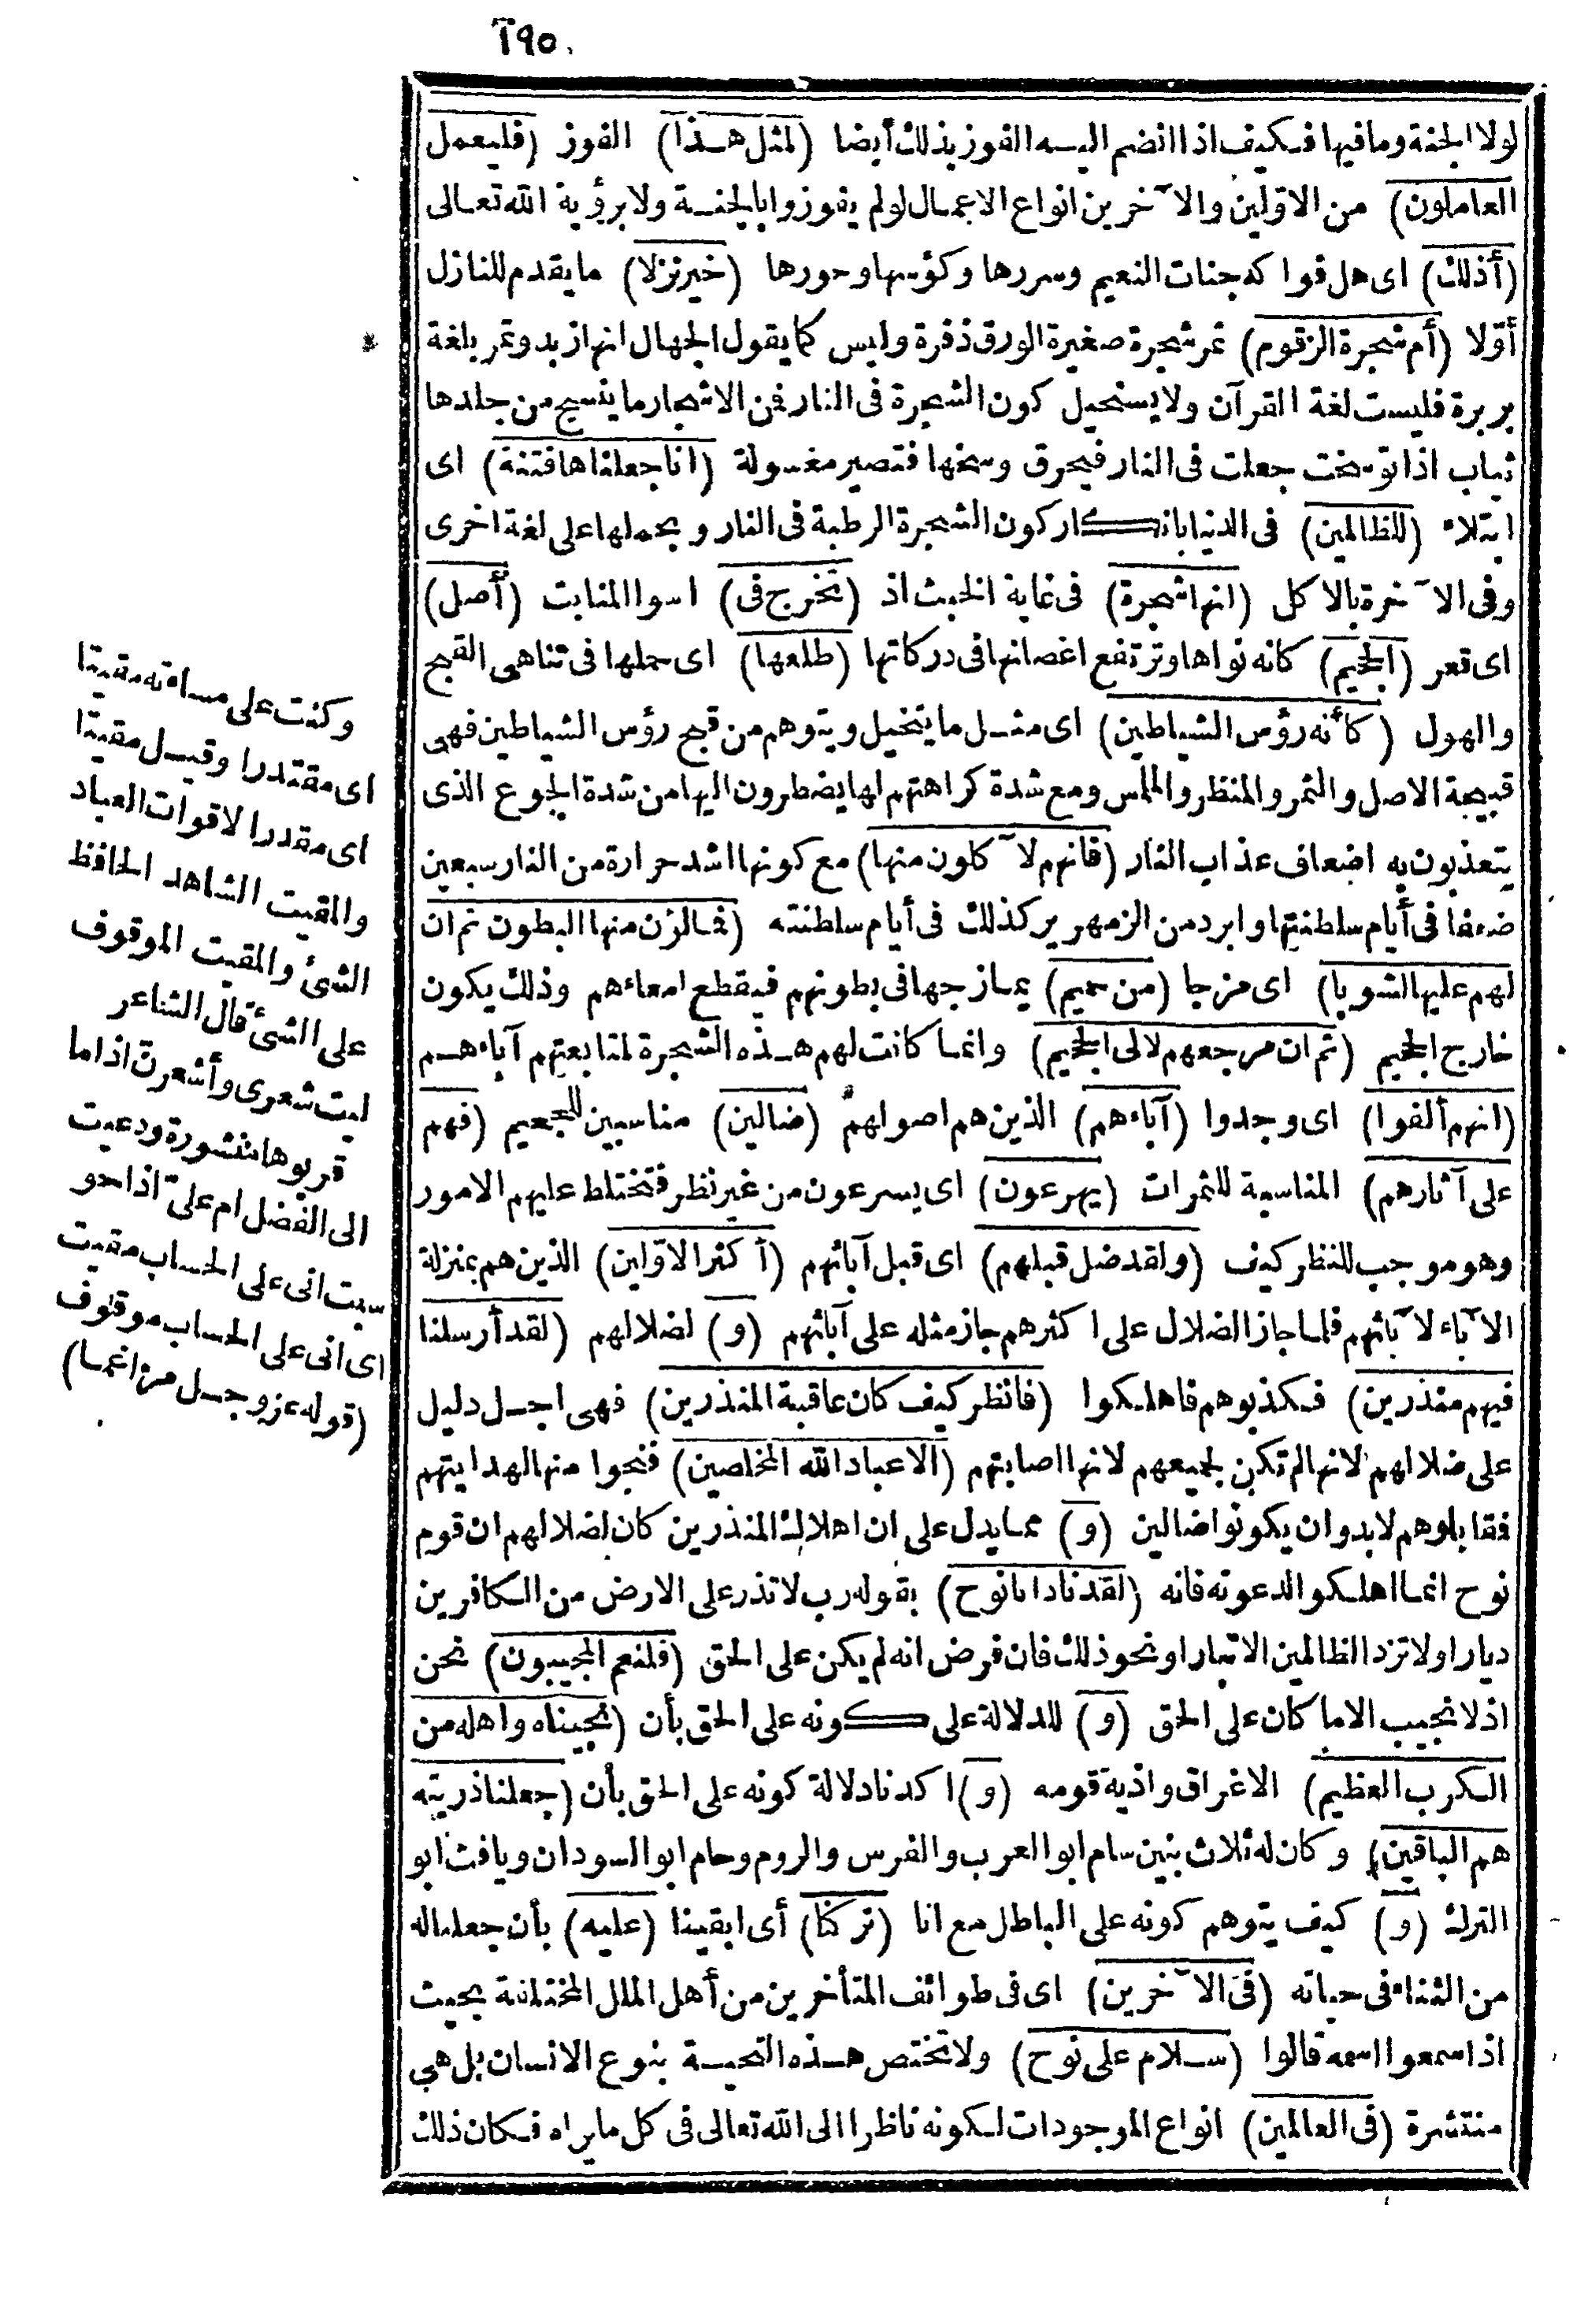 ٢٩٥
لولا الجنة وما فيها فكيف اذا انضم اليه الفوز بذلك أيضا (لمثل هذا) الفوز (فليعمل
العاملون) من الاوّلين والآخرين انواع الاعمال لو لم يفوزوا بالجنة ولا برؤية الله تعالى
(أذلك) اى هل فواكه جنات النعيم وسررها وكؤسها وحورها (خير نزلا) ما يقدم للنازل
أوّلا (أم شجرة الزقوم) ثمر شجرة صغيرة الورق ذفرة وليس كما يقول الجهال انها زبد وتمر بلغة
بربرة فليست لغة القرآن ولا يستحيل كون الشجرة فى النار فمن الاشجار ما ينسج من جلدها
ثياب اذا توسخت جعلت فى النار فيحرق وسخها فتصير مغسولة (انا جعلناها فتنة) اى
ابتلاء (للظالمين) فى الدنيا بانكار كون الشجرة الرطبة فى النار وبحملها على لغة اخرى
وفى الآخرة بالاكل (انها شجرة) فى غاية الخبث اذ (تخرج فى) اسوا المنابت (أصل)
اى قعر (الجحيم) كانه نواها وترتفع اغصانها فى دركاتها (طلعها) اى حملها فى تناهى القبح
والهول (كأنه رؤس الشياطين) اى مثل ما يتخيل ويتوهم من قبح رؤس الشياطين فهى
قبيحة الاصل والثمر والمنظر والملمس ومع شدة كراهتهم لها يضطرون اليها من شدة الجوع الذى
يتعذبون به اضعاف عذاب النار (فانهم لآكلون منها) مع كونها اشد حرارة من النار سبعين
ضعفا فى أيام سلطنتها وابرد من الزمهرير كذلك فى أيام سلطنته (فمالؤن منها البطون ثم ان
لهم عليها لشوبا) اى مزجا (من حميم) يمازجها فى بطونهم فيقطع امعاءهم وذلك يكون
خارج الجحيم (ثم ان مرجعهم لالى الجحيم) وانما كانت لهم هذه الشجرة لمتابعتهم آباءهم
(انهم ألفوا) اى وجدوا (آباءهم) الذين هم اصولهم (ضالين) مناسبين للجحيم (فهم
على آثارهم) المناسبة للثمرات (يهرعون) اى يسرعون من غير نظر فتختلط عليهم الامور
وهو موجب للنظر كيف (ولقد ضل قبلهم) اى قبل آبائهم (أكثر الاوّلين) الذين هم بمنزلة
الآباء لآبائهم فلما جاز الضلال على اكثرهم جاز مثله على آبائهم (و) لضلالهم (لقد أرسلنا
فيهم منذرين) فكذبوهم فاهلكوا (فانظر كيف كان عاقبة المنذرين) فهى اجل دليل
على ضلالهم لانها لم تكن لجميعهم لانها اصابتهم (الا عباد الله المخلصين) فنجوا منها لهدايتهم
فقابلوهم لا بد وان يكونوا ضالين (و) مما يدل على ان اهلاك المنذرين كان لضلالهم ان قوم
نوح انما اهلكوا لدعوته فانه (لقد نادانا نوح) بقوله رب لا تذر على الارض من الكافرين
ديارا ولا تزد الظالمين الا تبارا ونحو ذلك فان فرض انه لم يكن على الحق (فلنعم المجيبون) نحن
اذ لا نجيب الا ما كان على الحق (و) للدلالة على كونه على الحق بأن (نجيناه واهله من
الكرب العظيم) الاغراق واذية قومه (و) اكدنا دلالة كونه على الحق بأن (جعلنا ذريته
هم الباقين) وكان له ثلاث بنين سام ابو العرب والفرس والروم وحام ابو السودان ويافث ابو
الترك (و) كيف يتوهم كونه على الباطل مع انا (تركنا) أى ابقينا (عليه) بأن جعلنا له
من الثناء فى حياته (فى الآخرين) اى فى طوائف المتأخرين من أهل الملل المختلفة بحيث
اذا سمعوا اسمه قالوا (سلام على نوح) ولا تختص هذه التحية بنوع الانسان بل هى
منتشرة (فى العالمين) انواع الموجودات لكونه ناظرا الى الله تعالى فى كل ما يراه فكان ذلك
وكنت على مساءته مقيتا
اى مقتدرا وقيل مقيتا
اى مقدرا لاقوات العباد
والمقيت الشاهد الحافظ
الشئ والمقيت الموقوف
على الشئ قال الشاعر
ليت شعرى وأشعرن اذا ما
قربوها منشورة ودعيت
الى الفضل ام علىّ اذا حو
سبت انى على الحساب مقيت
اى انى على الحساب موقوف
(قوله عز وجل مراغما)